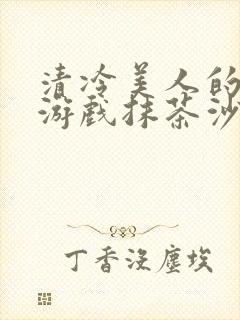 清冷美人的
游戏抹茶沙
丁香没尘埃